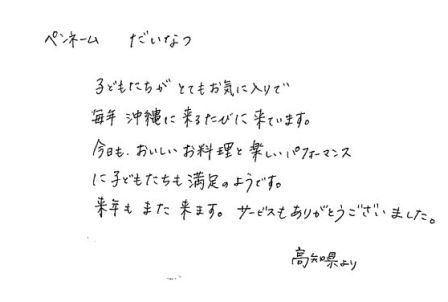 ペンネーム だいなつ
子どもたちが とてもお気に入りで
毎年 沖縄に来るたびに来ています。
今日も、おいしいお料理と楽しいパフォーマンス
に子どもたちも満足のようです。
来年もまた来ます。サービスもありがとうございました。
高知県より